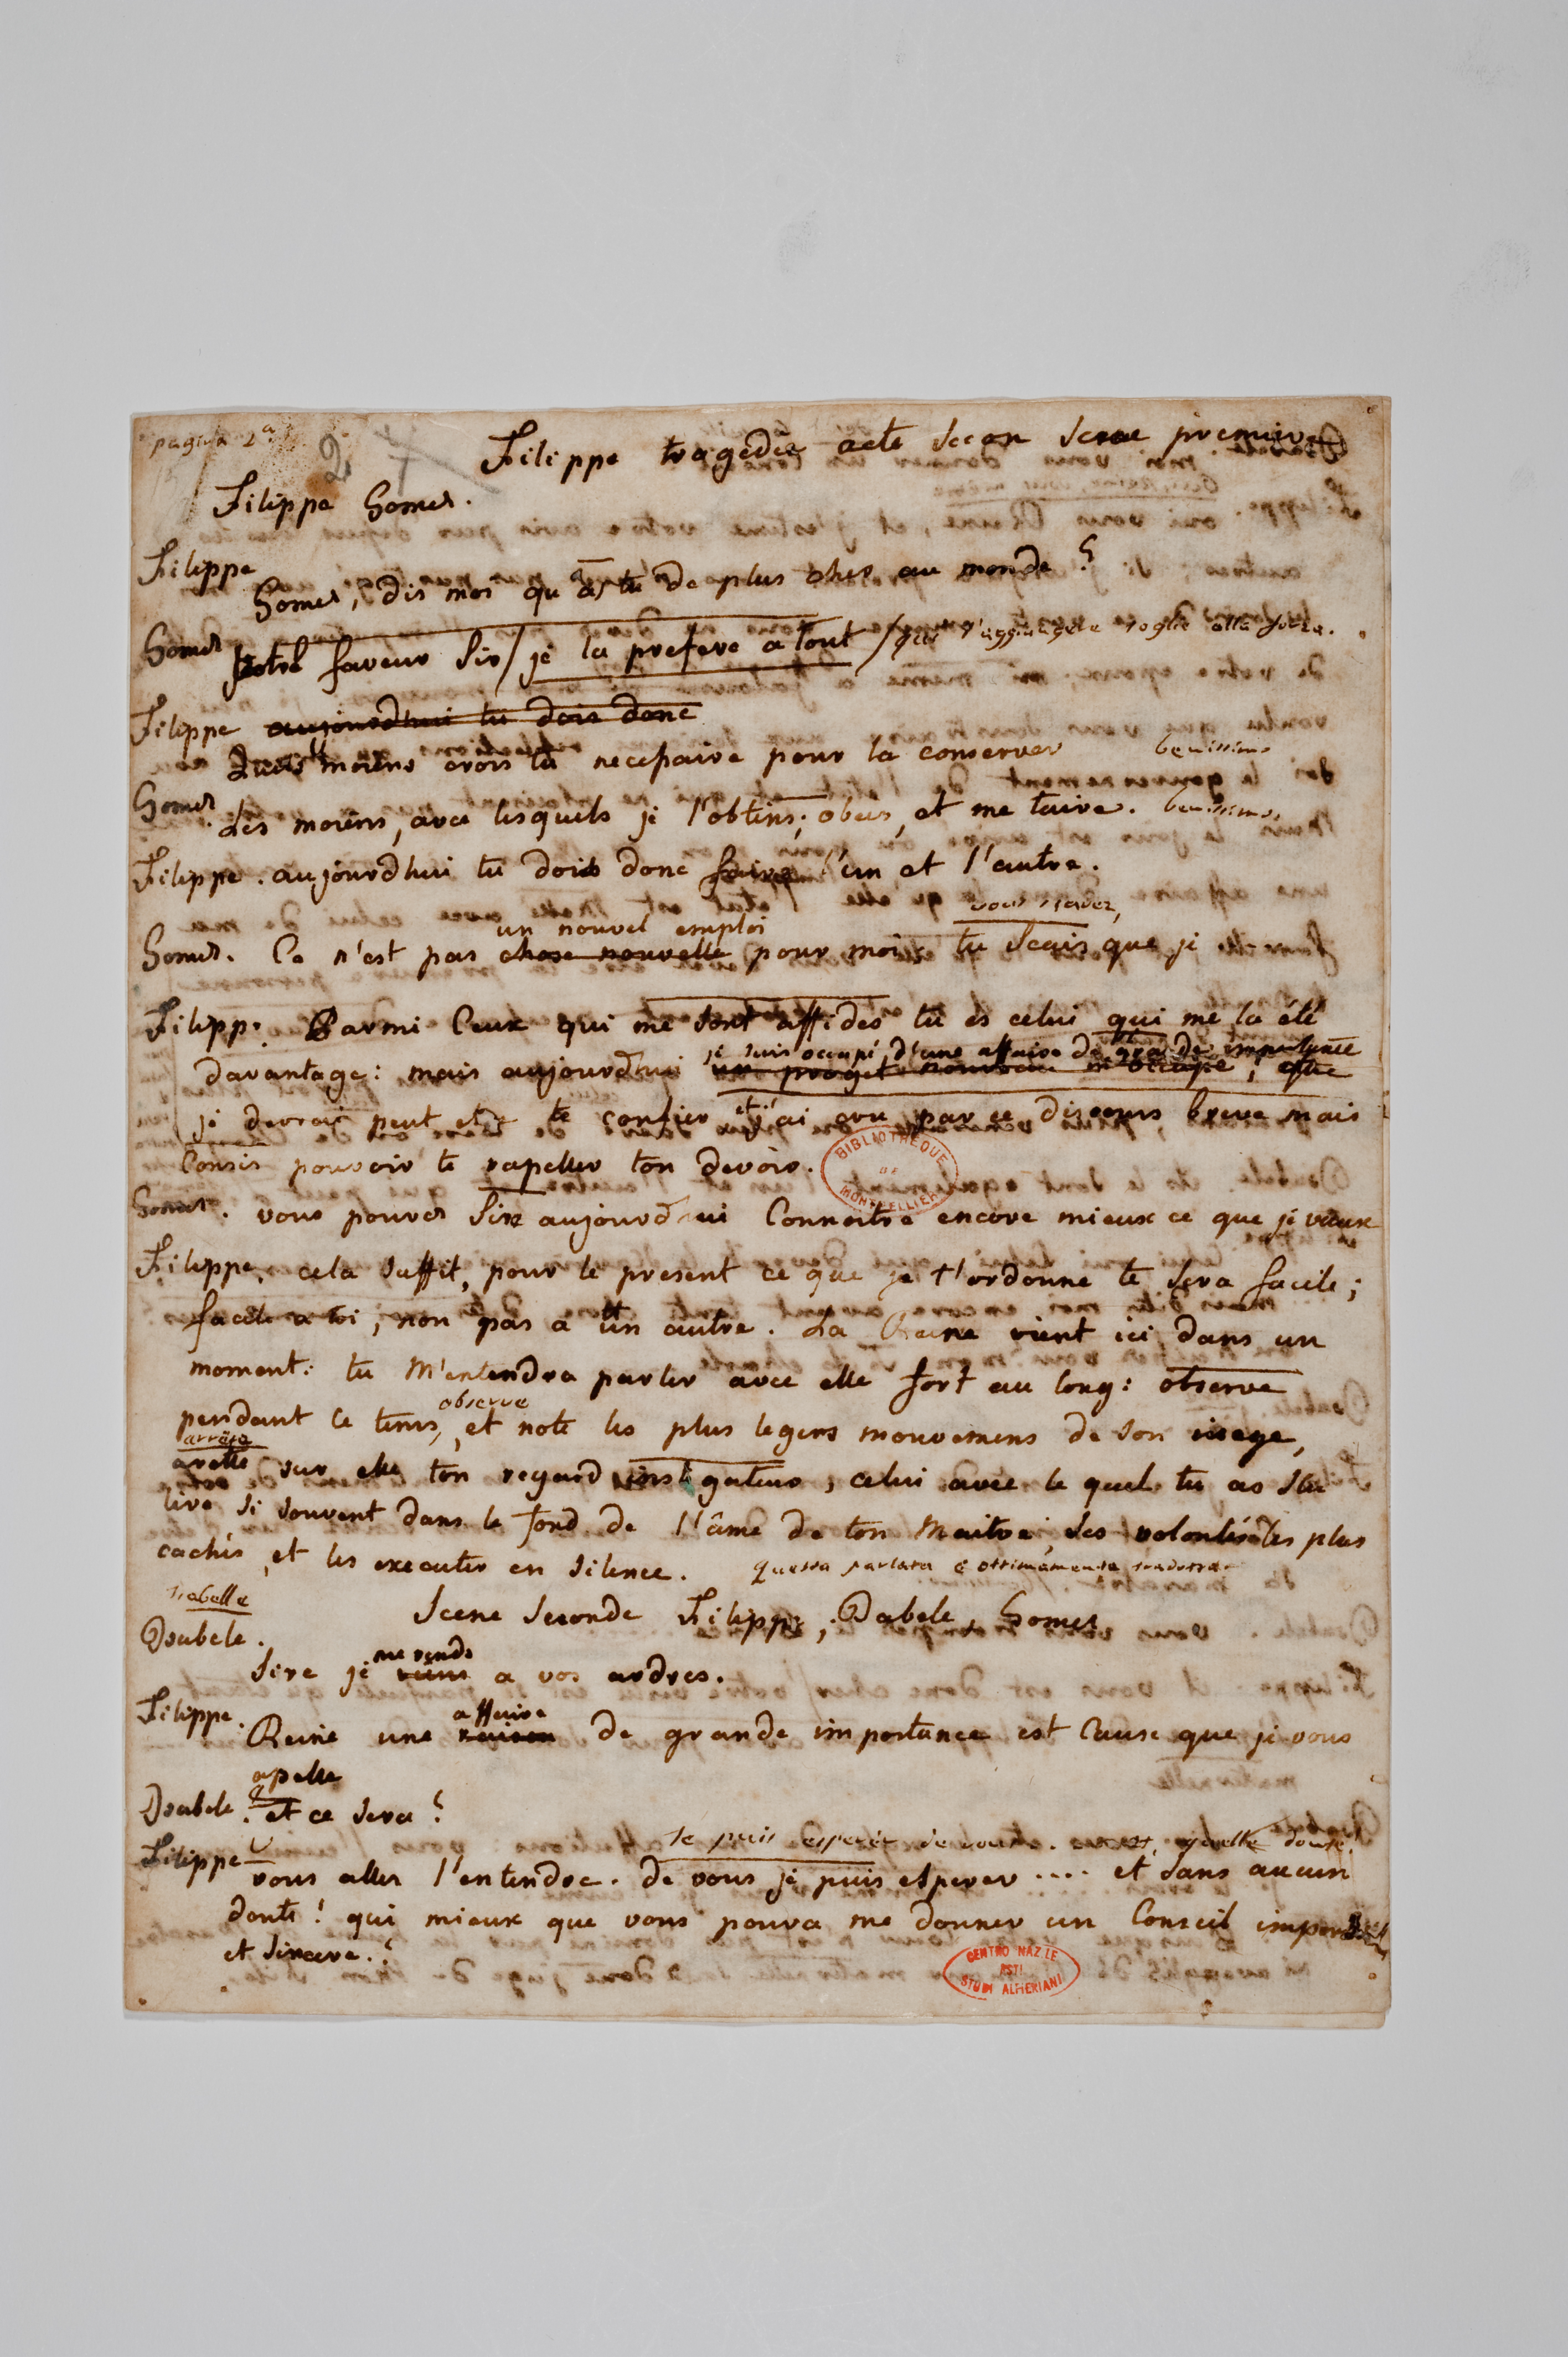 pagina 2a
2
Filippe tragedie acte secon scene premiere
Filippe Gomez.
Filippe
Gomez, dis moi qu as tu de plus cher au monde?
Gomez
Votre faveur Sir / je la prefere a tout / qui s'aggiungere toglie alla forza.
Filippe aujourdhui tu dois donc
Quels moiens crois tu necessaire pour la conserver benissimo
Gomez. Les moiens, avec lesquels je l'obtins; obeis, et me taire. benissimo.
Filippe. aujourdhui tu dois donc faire l'un et l'autre.
un nouvel emploi vous scavez,
Gomez. Ce n'est pas chose nouvelle pour moi: tu scais que je
Filipp. Parmi ceux qui me sont affides tu es celui qui me la été
je suis occupé d'une affaire de grande importance
davantage: mais aujourdhui un proget nouveau m'occupe; que
je devrai peut etre te confier et j'ai cru par ce discours breve mais
concis pouvoir te rapeller ton devoir.
BIBLIOTHEQUE DE MONTPELLIER
Gomez. vous pouvez Sire aujourdhui connoitre encore mieux ce que je vaux
Filippe. cela suffit, pour le present ce que je t'ordonne te sera facile;
facile a toi, non pas a un autre. La Reine vient ici dans un
moment: tu m'entendra parler avec elle fort au long: observe
observe
pendant ce tems, et note les plus legers mouvemens de son visage,
arrête
arette sur elle ton regard instigateur, celui avec le quel tu as scu
lire si souvent dans le fond de l'âme de ton Maitre, ses volontés les plus
cachés, et les executer en silence. questa parlata è ottimamente tradotta
Isabelle
Scene seconde Filippe, Isabele, Gomez
Isabele.
me rends
Sire je viens a vos ordres.
Filippe.
affaire
Reine une raison de grande importance est cause que je vous
apelle
Isabele. et ce sera?
Je puis esperer de vous. et, quelle doute!
Filippe
vous aller l'entendre. de vous je puis esperer .... et sans aucun
doute! qui mieux que vous poura me donner un Conseil
et sincere.?
CENTRO NAZ.LE ASTI STUDI ALFIERIANI